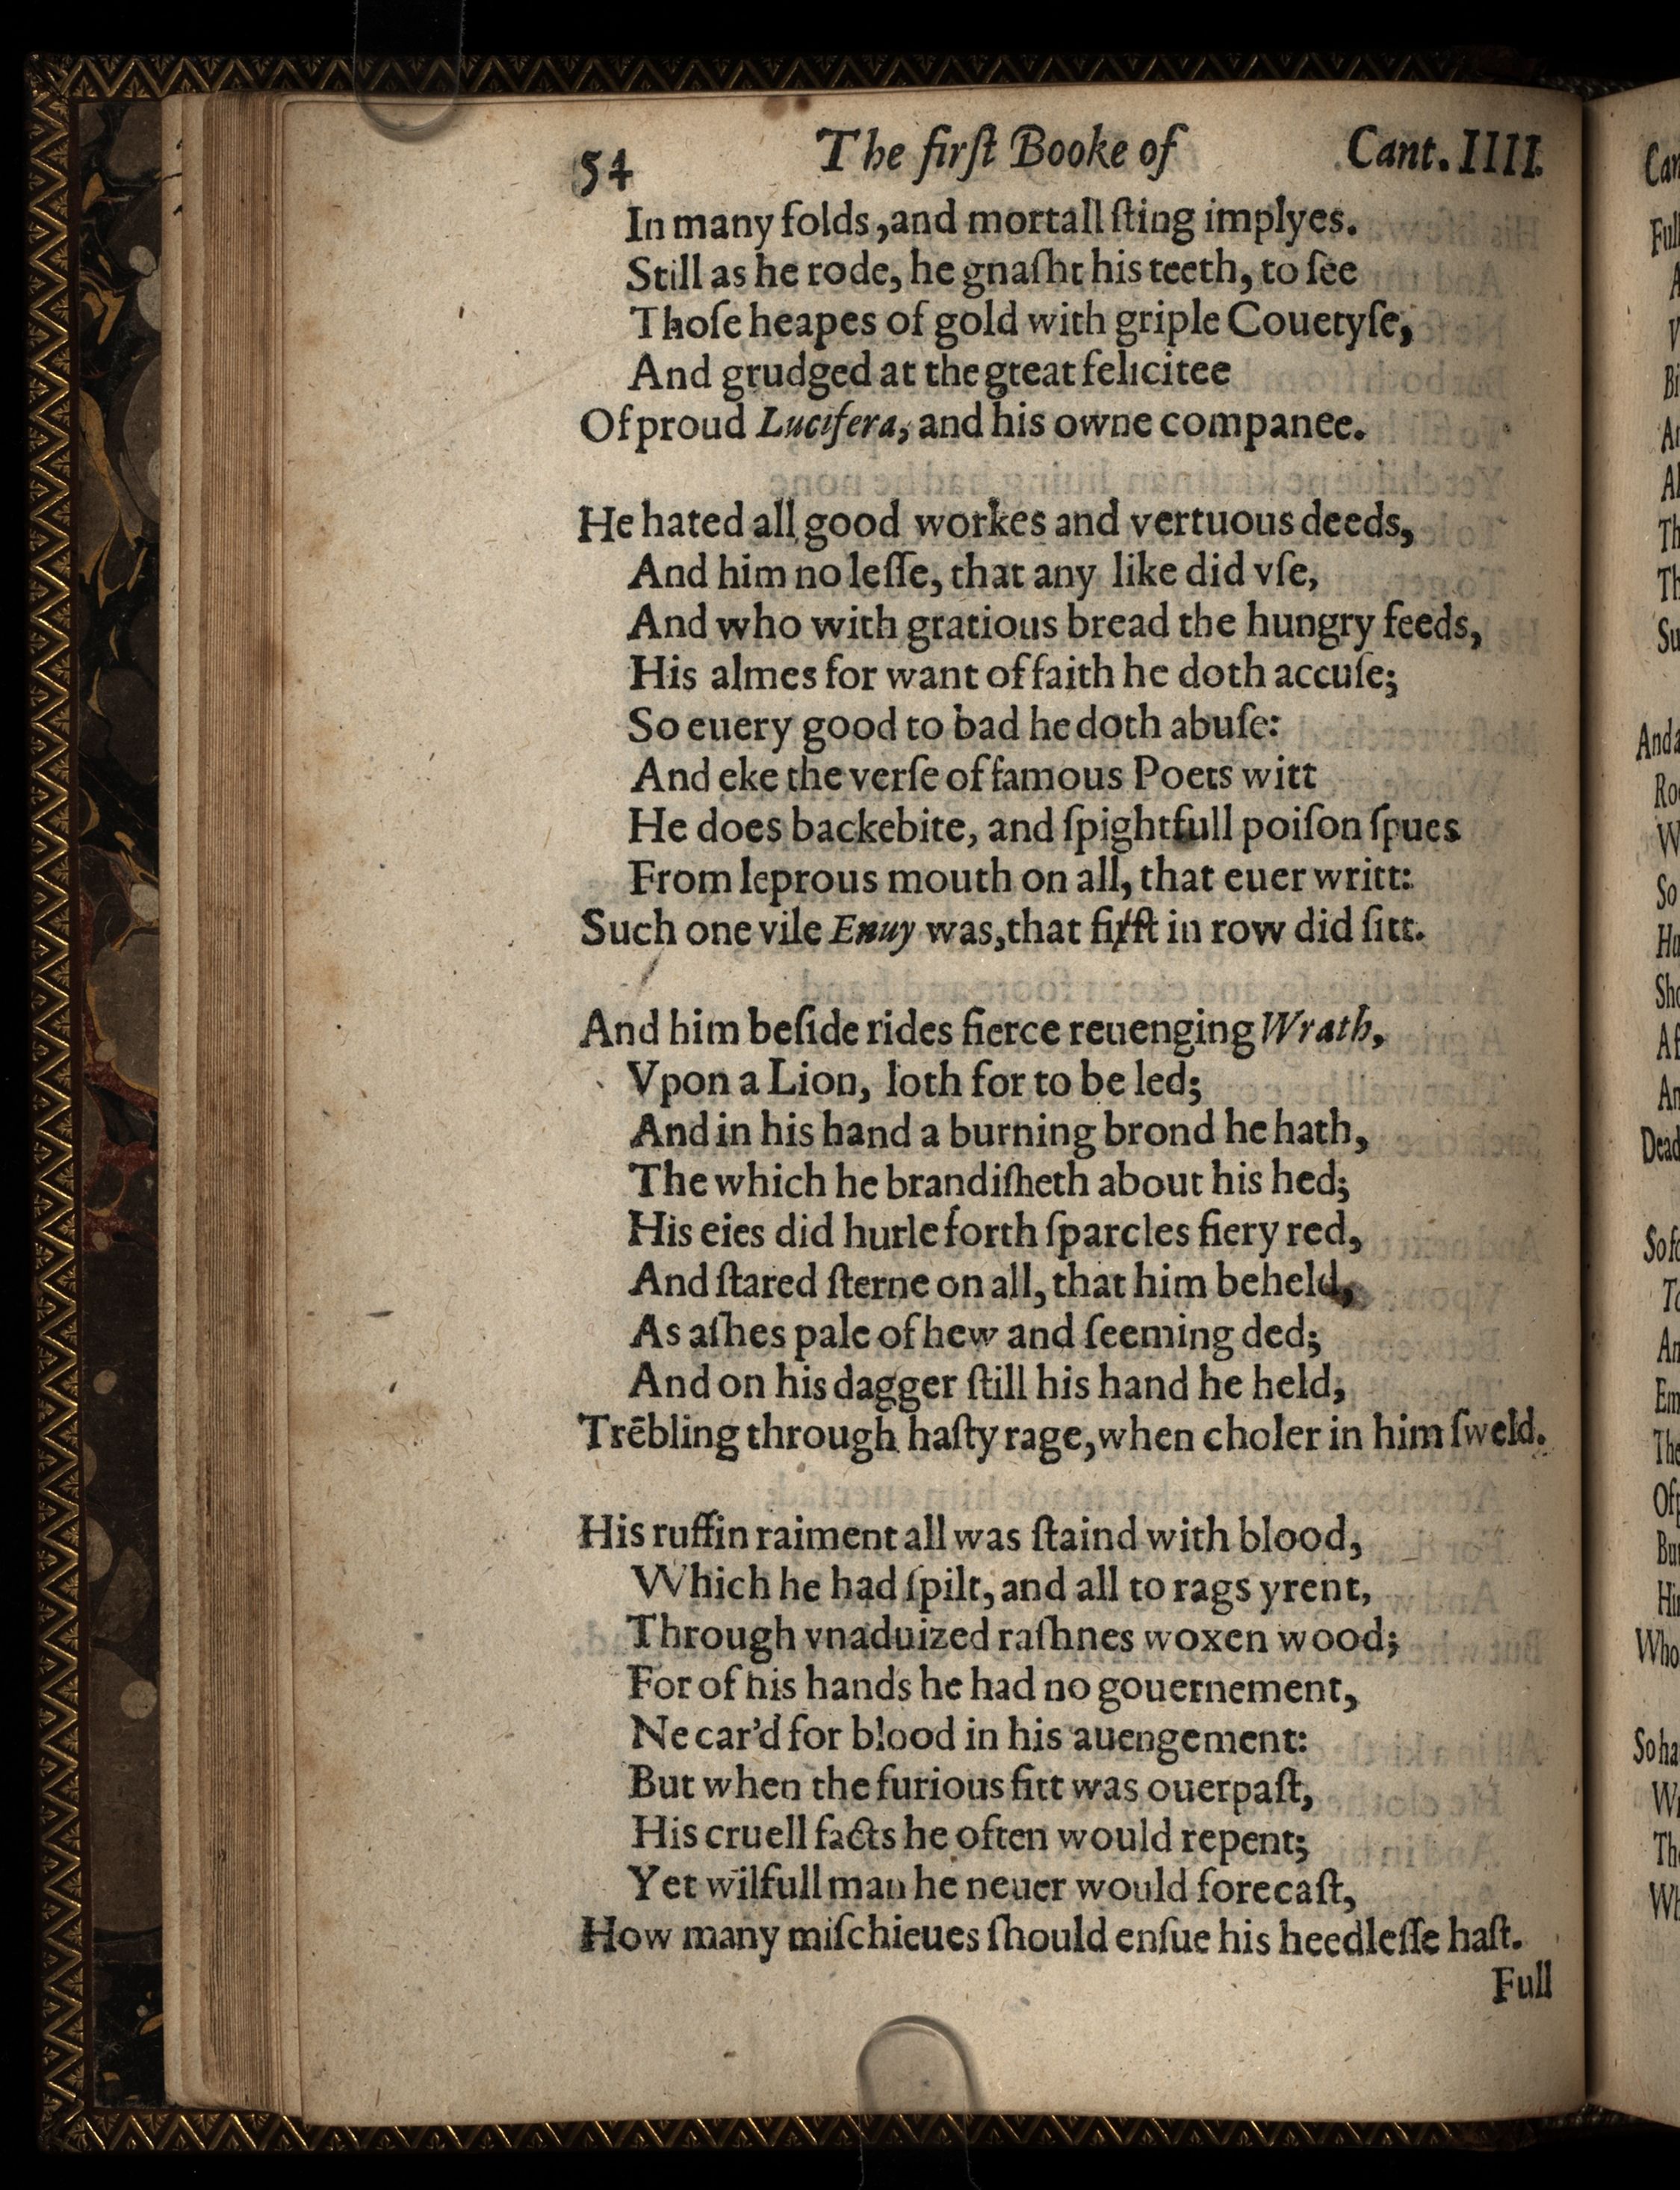 54 The firſt Booke of Cant. IIII.
In many folds, and mortall ſting implyes.
Still as he rode, he gnaſht his teeth, to ſee
Thoſe heapes of gold with griple Couetyſe,
And grudged at the great felicitee
Of proud Lucifera, and his owne companee.
He hated all good workes and vertuous deeds,
And him no leſſe, that any like did vſe,
And who with gratious bread the hungry feeds,
His almes for want of faith he doth accuſe;
So euery good to bad he doth abuſe:
And eke the verſe of famous Poets witt
He does backebite, and ſpightfull poiſon ſpues
From leprous mouth on all, that euer writt:
Such one vile Enuy was, that firſt in row did ſitt.
And him beſide rides fierce reuenging Wrath,
Vpon a Lion, loth for to be led;
And in his hand a burning brond he hath,
The which he brandiſheth about his hed;
His eies did hurle forth ſparcles fiery red,
And ſtared ſterne on all, that him beheld,
As aſhes pale of hew and ſeeming ded;
And on his dagger ſtill his hand he held,
Trēbling through haſty rage, when choler in him ſweld.
His ruffin raiment all was ſtaind with blood,
Which he had ſpilt, and all to rags yrent,
Through vnaduized raſhnes woxen wood;
For of his hands he had no gouernement,
Ne car'd for blood in his auengement:
But when the furious fitt was ouerpaſt,
His cruell facts he often would repent;
Yet wilfull man he neuer would forecaſt,
How many miſchieues ſhould enſue his heedleſſe haſt.
Full